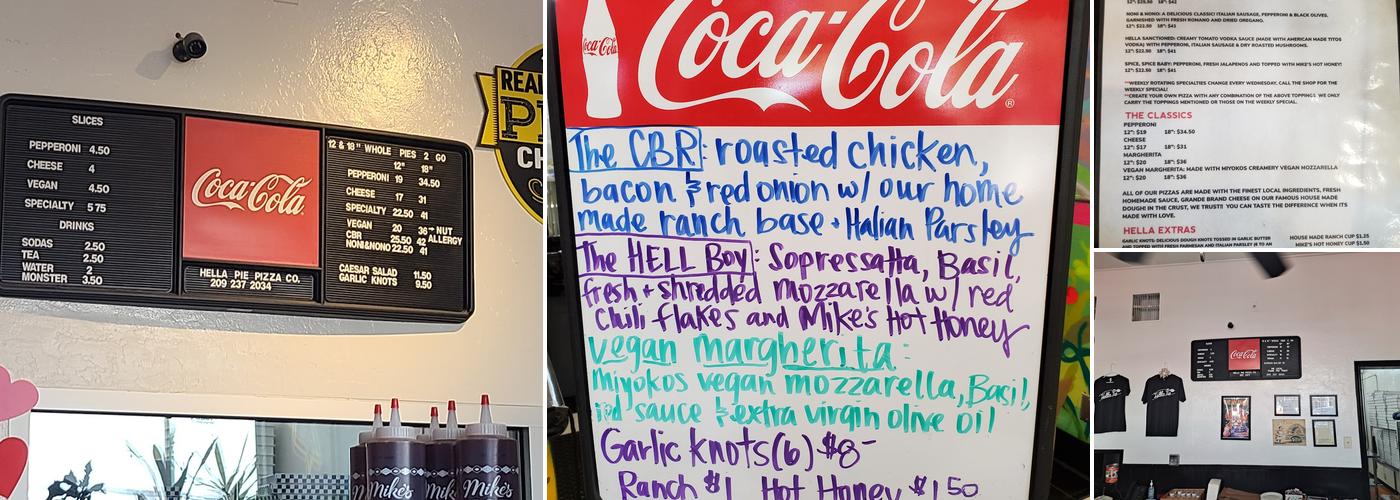 SLICES
PEPPERONI 4.50
CHEESE 4
VEGAN 4.50
SPECIALTY 5 75
DRINKS
SODAS 2.50
TEA 2.50
WATER 2
MONSTER 3.50
Coca-Cola
HELLA PIE PIZZA CO.
209 237 2034
12 & 18" WHOLE PIES 2 GO
12" 18"
PEPPERONI 19 34.50
CHEESE 17 31
SPECIALTY 22.50 41
VEGAN 20 36 NUT
CBR 25.50 42 ALLERGY
NONI&NONO 22.50 41
CAESAR SALAD 11.50
GARLIC KNOTS 9.50
REAL
CH
Mike's
Mike's
Mike's
Coca-Cola
Coca-Cola®
The CBR: roasted chicken,
bacon & red onion w/ our home
made ranch base + Italian Parsley
The HELL BOY: Sopressatta, Basil,
fresh + shredded mozzarella w/ red
Chili flakes and Mike's Hot Honey
Vegan margherita:
Miyokos vegan mozzarella, Basil,
red sauce & extra virgin olive oil
Garlic knots (6) $8-
Ranch $1 Hot Honey $1.50
12": $25.50 18": $42
NONI & NONO: A DELICIOUS CLASSIC! ITALIAN SAUSAGE, PEPPERONI & BLACK OLIVES,
GARNISHED WITH FRESH ROMANO AND DRIED OREGANO.
12": $22.50 18": $41
HELLA SANCTIONED: CREAMY TOMATO VODKA SAUCE (MADE WITH AMERICAN MADE TITOS
VODKA) WITH PEPPERONI, ITALIAN SAUSAGE & DRY ROASTED MUSHROOMS.
12": $22.50 18": $41
SPICE, SPICE BABY: PEPPERONI, FRESH JALAPENOS AND TOPPED WITH MIKE'S HOT HONEY!
12": $22.50 18": $41
**WEEKLY ROTATING SPECIALTIES CHANGE EVERY WEDNESDAY. CALL THE SHOP FOR THE
WEEKLY SPECIAL!
**CREATE YOUR OWN PIZZA WITH ANY COMBINATION OF THE ABOVE TOPPINGS WE ONLY
CARRY THE TOPPINGS MENTIONED OR THOSE ON THE WEEKLY SPECIAL.
THE CLASSICS
PEPPERONI
12": $19 18": $34.50
CHEESE
12": $17 18": $31
MARGHERITA
12": $20 18": $36
VEGAN MARGHERITA: MADE WITH MIYOKOS CREAMERY VEGAN MOZZARELLA
12": $20 18": $36
ALL OF OUR PIZZAS ARE MADE WITH THE FINEST LOCAL INGREDIENTS, FRESH
HOMEMADE SAUCE, GRANDE BRAND CHEESE ON OUR FAMOUS HOUSE MADE
DOUGH! IN THE CRUST, WE TRUST!! YOU CAN TASTE THE DIFFERENCE WHEN ITS
MADE WITH LOVE.
HELLA EXTRAS
GARLIC KNOTS: DELICIOUS DOUGH KNOTS TOSSED IN GARLIC BUTTER
AND TOPPED WITH FRESH PARMESAN AND ITALIAN PARSLEY
HOUSE MADE RANCH CUP $1.25
MIKE'S HOT HONEY CUP $1.50
Coca-Cola